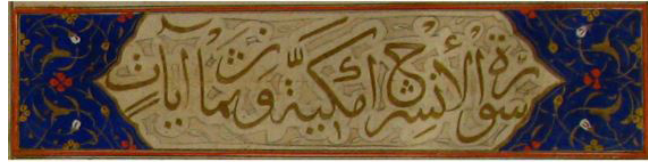 سورة الأنشراح مكية وثمان آيات